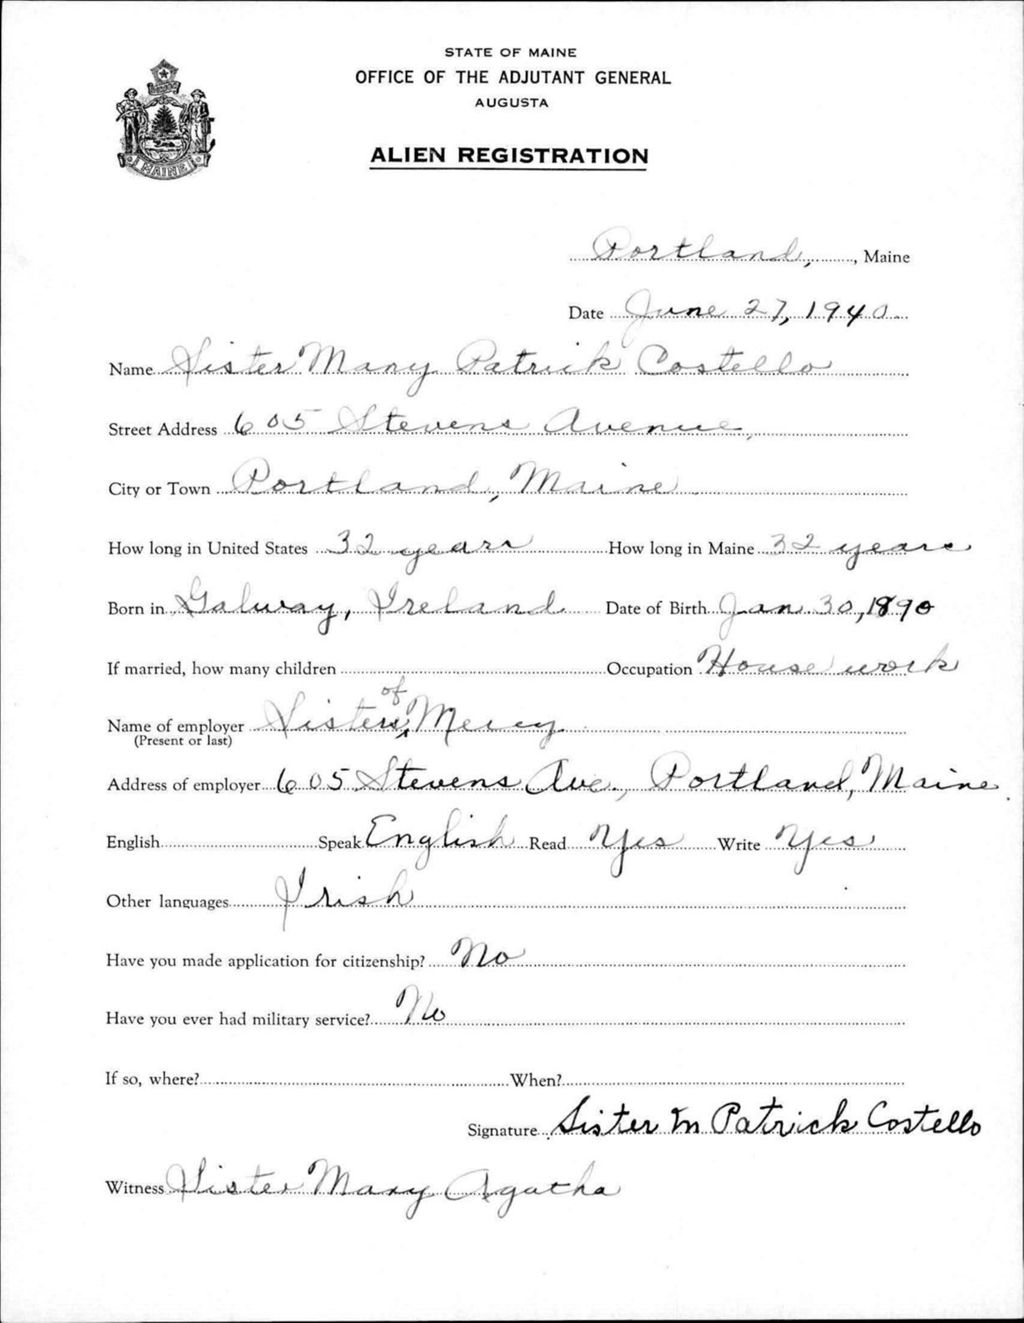 STATE OF MAINE
OFFICE OF THE ADJUTANT GENERAL
AUGUSTA
ALIEN REGISTRATION
MAINE
Portland, , Maine
Date June 27, 1940
Name Sister Mary Patrick Costello
Street Address 605 Stevens Avenue,
City or Town Portland, Maine
How long in United States 32 years How long in Maine 32 years
Born in Galway, Ireland Date of Birth Jan. 30, 1890
If married, how many children Occupation House work
Name of employer Sisters of Mercy
(Present or last)
Address of employer 605 Stevens Ave., Portland, Maine.
English Speak English Read Yes Write Yes
Other languages Irish
Have you made application for citizenship? No
Have you ever had military service? No
If so, where? When?
Signature Sister M Patrick Costello
Witness Sister Mary Agatha